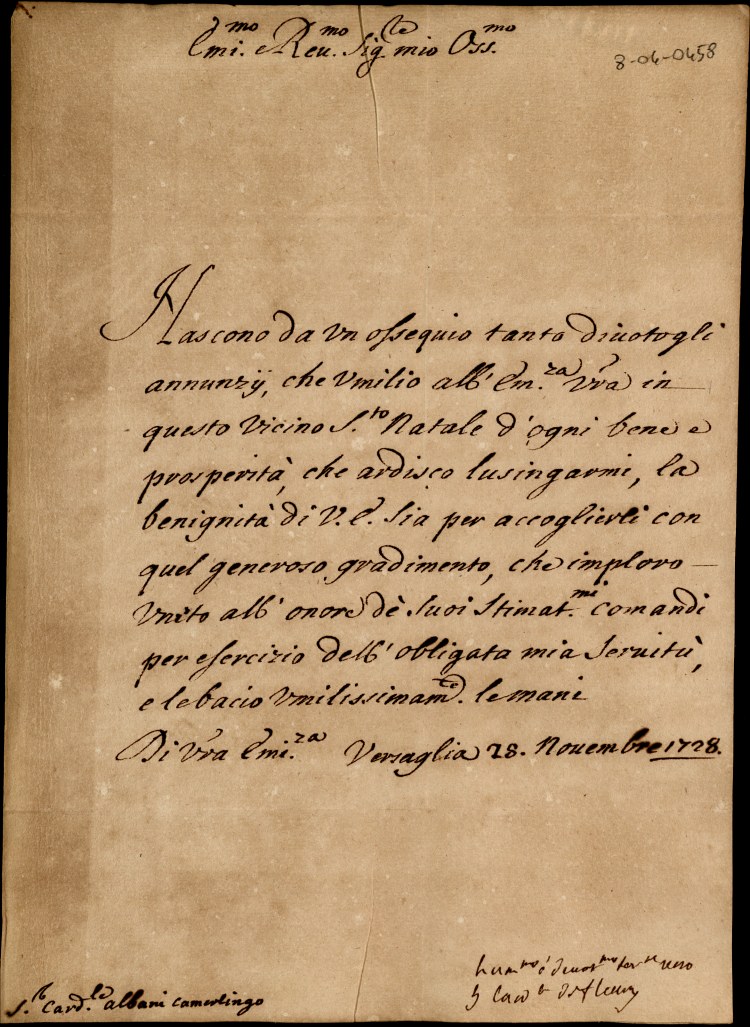 Emi.mo e Reu.mo Sig.le mio Oss.mo
8-04-0458
Nascono da vn ossequio tanto diuoto gli
annunzij, che vmilio all' Em.za Vr̃a in
questo vicino S.to Natale d'ogni bene e
prosperità, che ardisco lusingarmi, la
benignità di V. E. sia per accoglierli con
quel generoso gradimento, che imploro
vnito all' onore dè suoi stimat.mi comandi
per esercizio dell' obligata mia seruitù,
e le bacio vmilissimam.te le mani
Di Vr̃a Emi.za Versaglia 28. Nouembre 1728.
hum.mo é deuot.mo ser.re uero
Il Card.le de fleury
S.r Card.le albani camerlingo